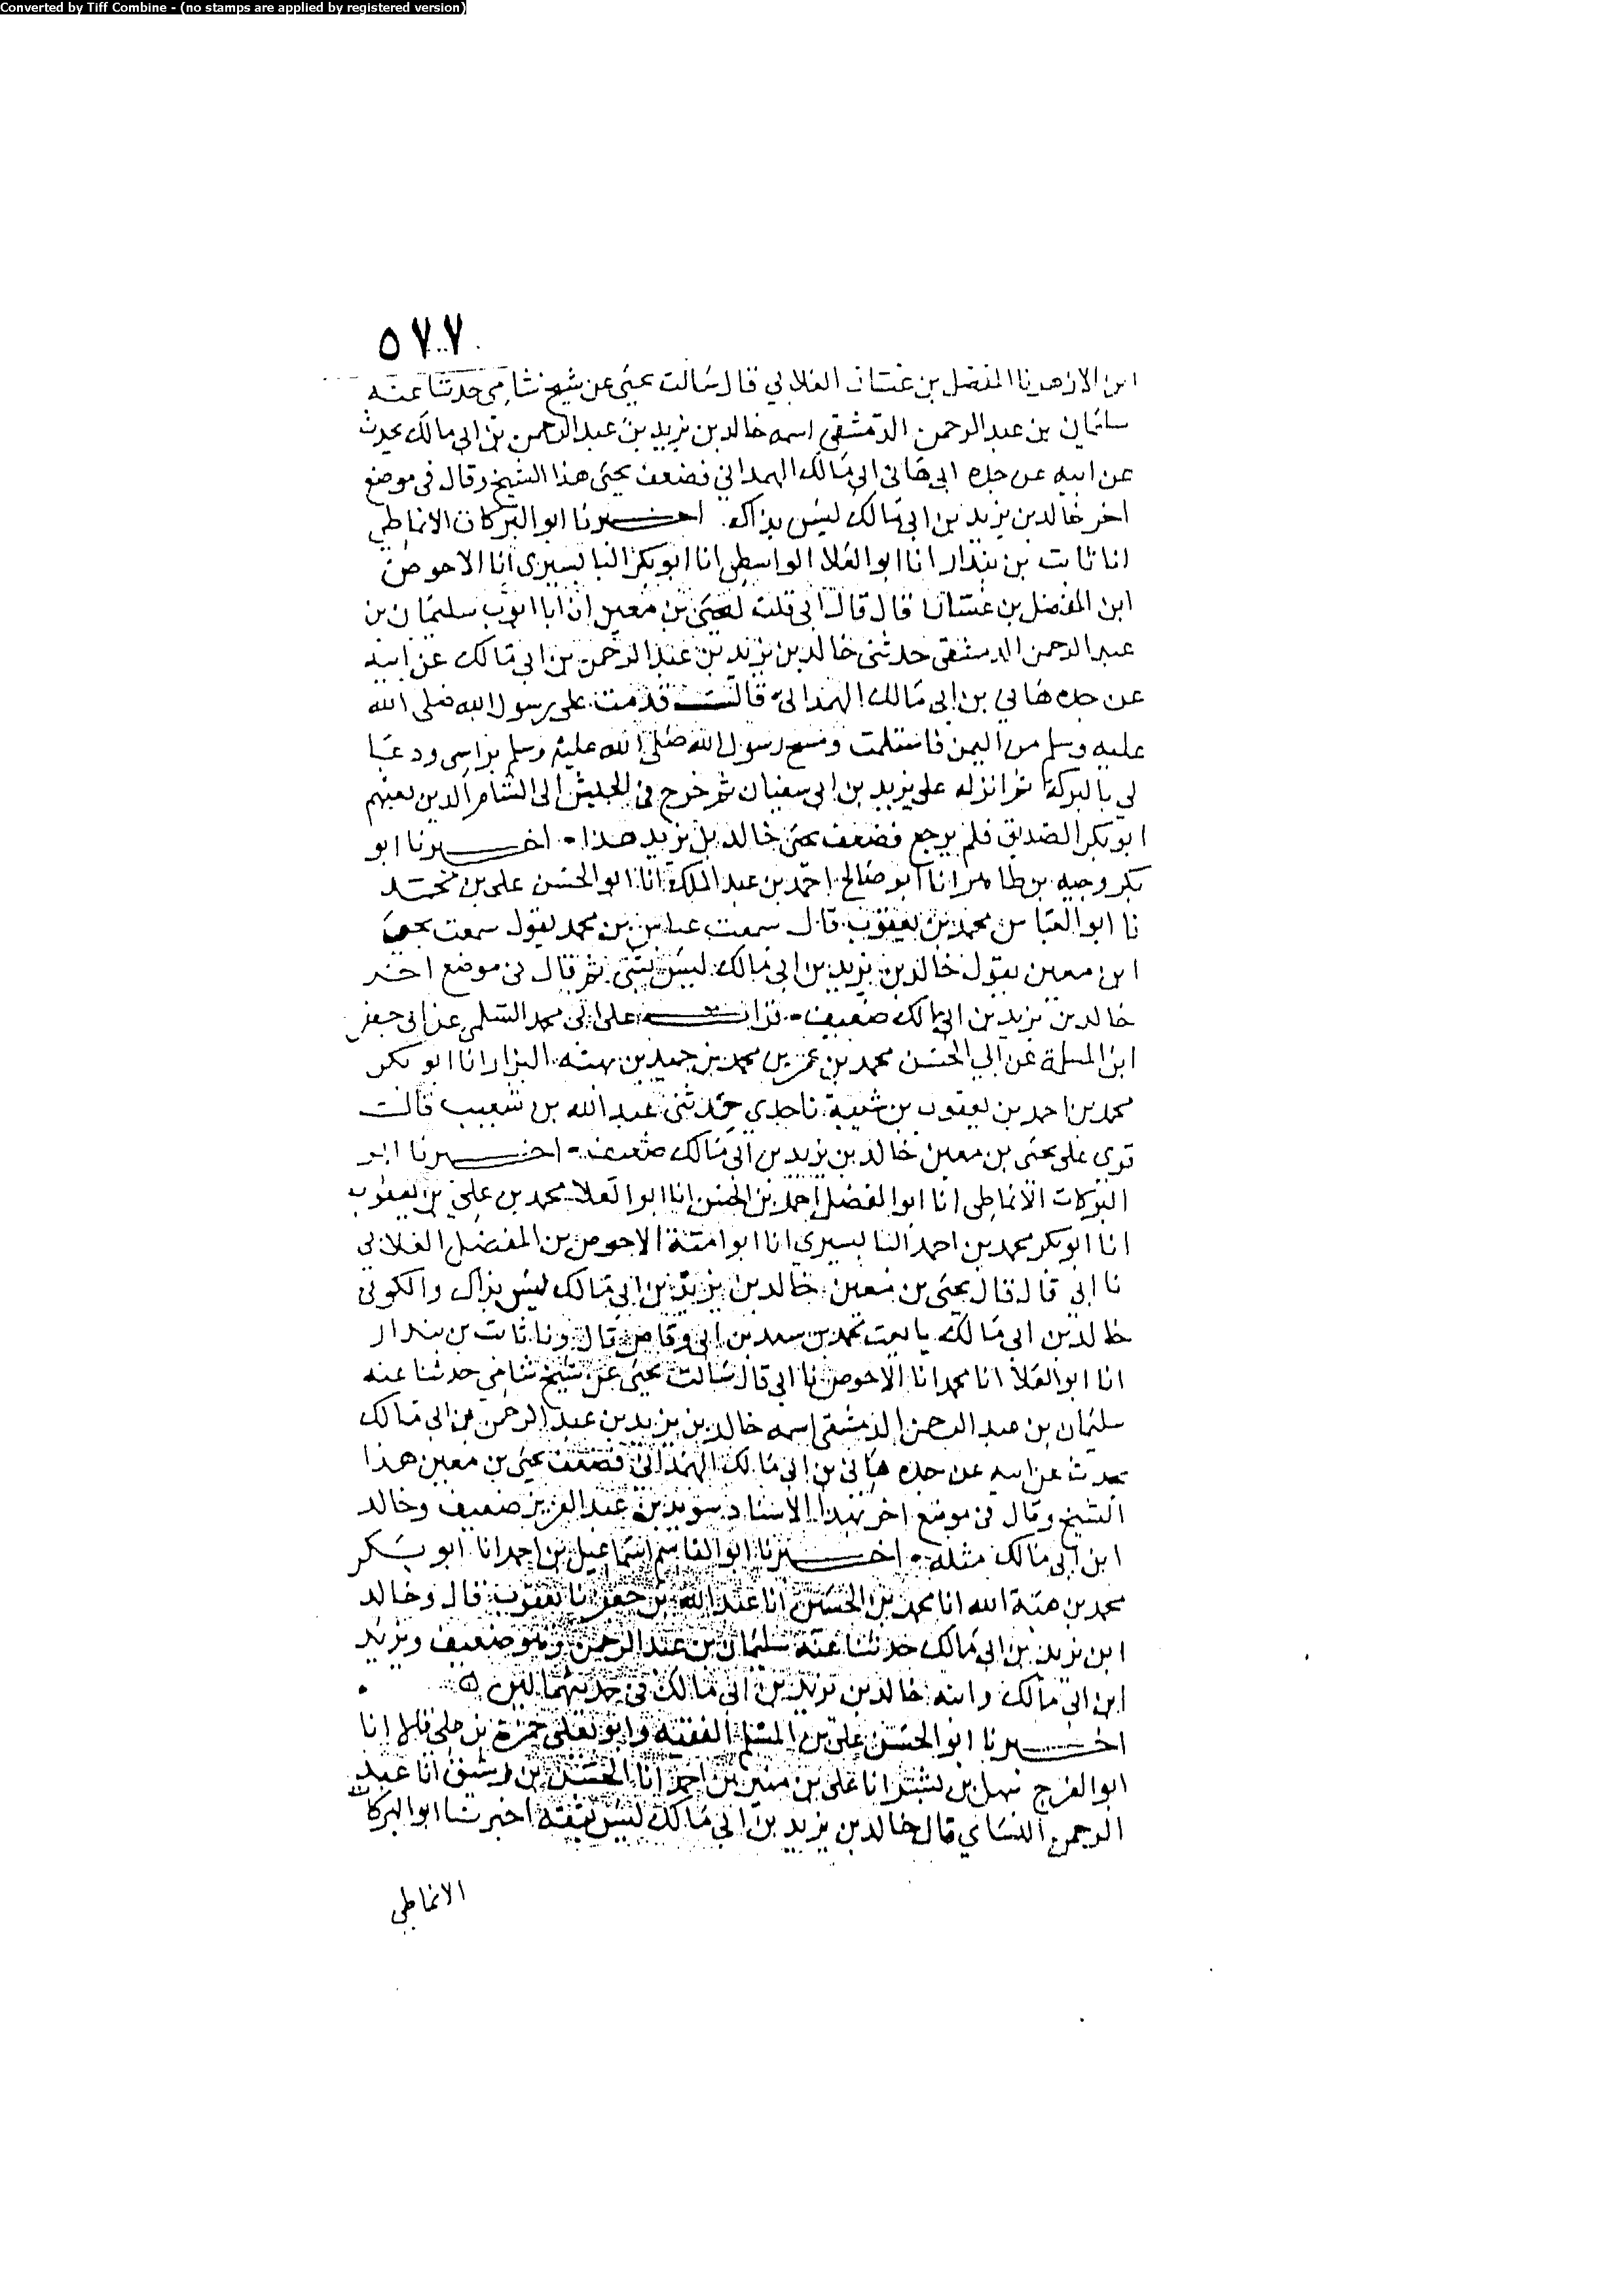 Converted by Tiff Combine - (no stamps are applied by registered version)
٥٧٧
ابن الازهر نا المفضل بن غسان الغلابي قال سالت يحيى عن شيخ شامي حدثنا عنه
سليمان بن عبد الرحمن الدمشقي اسمه خالد بن يزيد بن عبد الرحمن بن ابي مالك يحدث
عن ابيه عن جده ابي هانى ابي مالك الهمداني فضعف يحيى هذا الشيخ وقال في موضع
اخر خالد بن يزيد بن ابي مالك ليس بذاك. اخبرنا ابو البركات الانماطي
انا ثابت بن بندار انا ابو العلا الواسطي انا ابو بكر البابسيري انا الاحوص
ابن المفضل بن غسان قال قال ابي قلت ليحيى بن معين ان ابا ايوب سليمان بن
عبد الرحمن الدمشقي حدثني خالد بن يزيد بن عبد الرحمن بن ابي مالك عن ابيه
عن جده هاني بن ابي مالك الهمداني قال قدمت على رسول الله صلى الله
عليه وسلم من اليمن فاسلمت ومسح رسول الله صلى الله عليه وسلم براسي ودعا
لي بالبركة ثم انزله على يزيد بن ابي سفيان ثم خرج في الجيش الى الشام الذين بعثهم
ابو بكر الصديق فلم يرجع فضعف يحيى خالد بن يزيد هذا. اخبرنا ابو
بكر وجيه بن طاهر انا ابو صالح احمد بن عبد الملك انا ابو الحسن علي بن محمد
نا ابو العباس محمد بن يعقوب قال سمعت عباس بن محمد يقول سمعت يحيى
ابن معين يقول خالد بن يزيد بن ابي مالك ليس بشي ثم قال في موضع اخر
خالد بن يزيد بن ابي مالك ضعيف. قرات على ابي محمد السلمي عن ابي جعفر
ابن المسلمة عن ابي الحسن محمد بن عمر بن محمد بن حميد بن بهته البزار انا ابو بكر
محمد بن احمد بن يعقوب بن شيبة نا جدي حدثني عبد الله بن شعيب قال
قري على يحيى بن معين خالد بن يزيد بن ابي مالك ضعيف. اخبرنا ابو
البركات الانماطي انا ابو الفضل احمد بن الحسن انا ابو العلا محمد بن علي بن يعقوب
انا ابو بكر محمد بن احمد البابسيري انا ابو امية الاحوص بن المفضل الغلابي
نا ابي قال قال يحيى بن معين خالد بن يزيد بن ابي مالك ليس بذاك والكوفي
خالد بن ابي مالك محمد بن سعد بن ابي وقاص قال ونا ثابت بن بندار
انا ابو العلا انا محمد انا الاحوص نا ابي قال سالت يحيى عن شيخ شامي حدثنا عنه
سليمان بن عبد الرحمن الدمشقي اسمه خالد بن يزيد بن عبد الرحمن بن ابي مالك
يحدث عن ابيه عن جده هاني بن ابي مالك الهمداني فضعف يحيى بن معين هذا
الشيخ وقال في موضع اخر بهذا الاسناد سويد بن عبد العزيز ضعيف وخالد
ابن ابي مالك مثله. اخبرنا ابو القاسم اسماعيل بن احمد انا ابو بكر
محمد بن هبة الله انا محمد بن الحسين انا عبد الله بن جعفر نا يعقوب قال وخالد
ابن يزيد بن ابي مالك حدثنا عنه سليمان بن عبد الرحمن وهو ضعيف ويزيد
ابن ابي مالك وابنه خالد بن يزيد بن ابي مالك في حديثهما لين
اخبرنا ابو الحسن علي بن المسلم الفقيه وابو يعلى حمزة بن علي قالا انا
ابو الفرج سهل بن بشر انا علي بن منير بن احمد انا الحسن بن رشيق انا عبد
الرحمن النساي قال خالد بن يزيد بن ابي مالك ليس بثقة اخبرنا ابو البركات
الانماطي